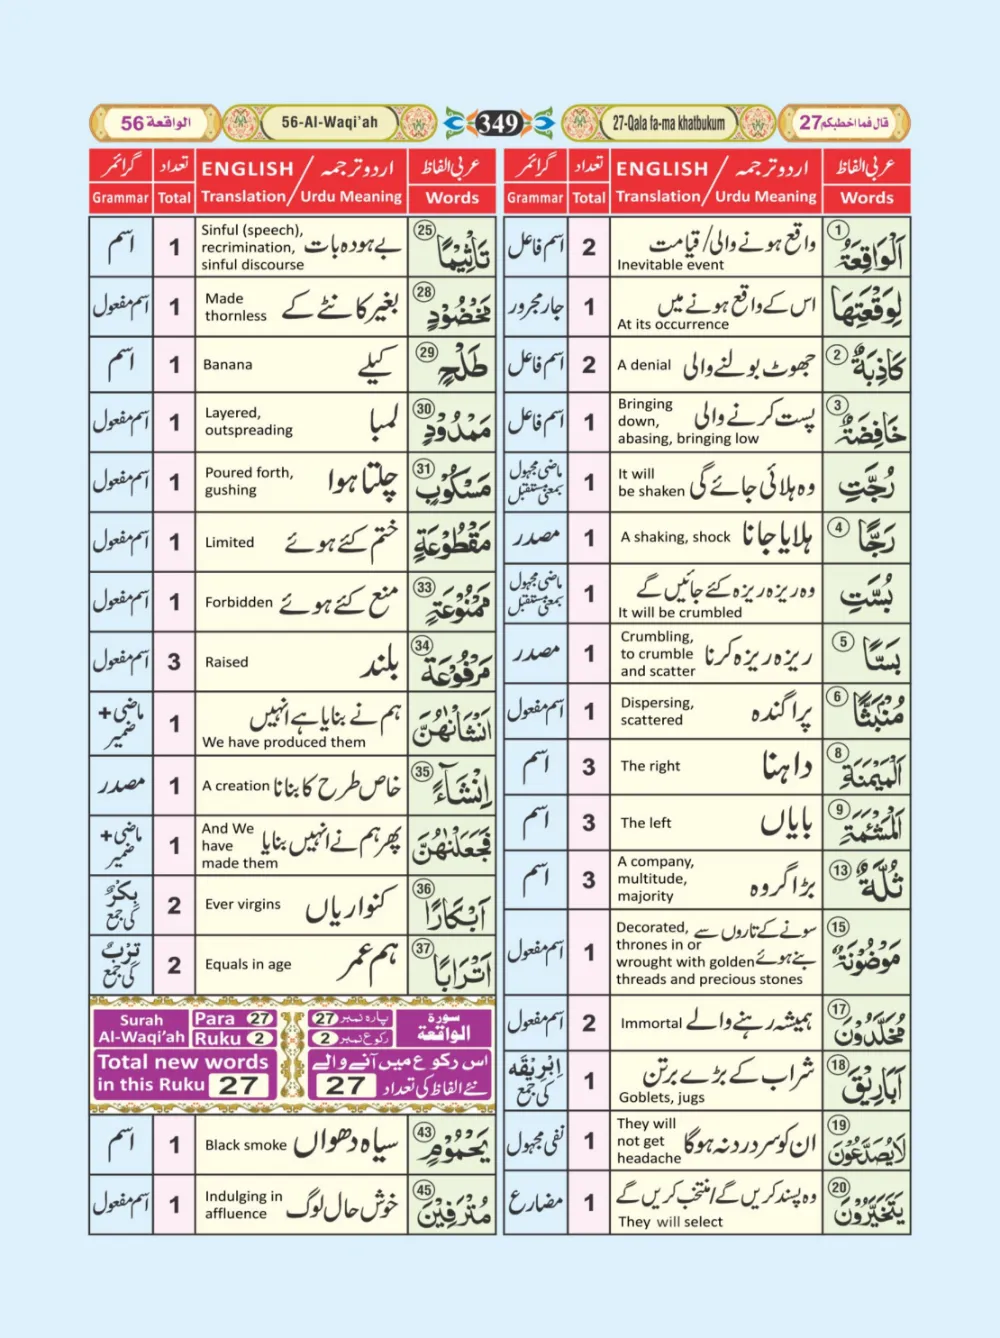 الواقعة 56
56-Al-Waqi’ah
349
27-Qala fa-ma khatbukum
قال فما خطبكم 27
عربی الفاظ
اردو ترجمہ / ENGLISH
تعداد
گرائمر
Words
Translation / Urdu Meaning
Total
Grammar
اَلْوَاقِعَةُ ①
واقع ہونے والی/ قیامت
Inevitable event
2
اسم فاعل
لِوَقْعَتِهَا
اس کے واقع ہونے میں
At its occurrence
1
جار مجرور
كَاذِبَةٌ ②
جھوٹ بولنے والی
A denial
2
اسم فاعل
خَافِضَةٌ ③
پست کرنے والی
Bringing
down,
abasing, bringing low
1
اسم فاعل
رُجَّتِ
وہ ہلائی جائے گی
It will
be shaken
1
ماضی مجہول
بمعنی مستقبل
رَجًّا ④
ہلایا جانا
A shaking, shock
1
مصدر
بُسَّتِ
وہ ریزہ ریزہ کئے جائیں گے
It will be crumbled
1
ماضی مجہول
بمعنی مستقبل
بَسًّا ⑤
ریزہ ریزہ کرنا
Crumbling,
to crumble
and scatter
1
مصدر
مُنْبَثًّا ⑥
پراگندہ
Dispersing,
scattered
1
اسم مفعول
الْمَيْمَنَةِ ⑧
داہنا
The right
3
اسم
الْمَشْئَمَةِ ⑨
بایاں
The left
3
اسم
ثُلَّةٌ ⑬
بڑا گروہ
A company,
multitude,
majority
3
اسم
مَوْضُوْنَةٍ ⑮
سونے کے تاروں سے
بنے ہوئے
Decorated,
thrones in or
wrought with golden
threads and precious stones
1
اسم مفعول
مُخَلَّدُوْنَ ⑰
ہمیشہ رہنے والے
Immortal
2
اسم مفعول
اَبَارِيْقَ ⑱
شراب کے بڑے برتن
Goblets, jugs
1
اِبْرِیْقَه
کی جمع
لَا يُصَدَّعُوْنَ ⑲
ان کو سر درد نہ ہوگا
They will
not get
headache
1
نفی مجہول
يَتَخَيَّرُوْنَ ⑳
وہ پسند کریں گے/ منتخب کریں گے
They will select
1
مضارع
عربی الفاظ
اردو ترجمہ / ENGLISH
تعداد
گرائمر
Words
Translation / Urdu Meaning
Total
Grammar
تَاْثِيْمًا ㉕
بے ہودہ بات
Sinful (speech),
recrimination,
sinful discourse
1
اسم
مَخْضُوْدٍ ㉘
بغیر کانٹے کے
Made
thornless
1
اسم مفعول
طَلْحٍ ㉙
کیلے
Banana
1
اسم
مَمْدُوْدٍ ㉚
لمبا
Layered,
outspreading
1
اسم مفعول
مَسْكُوْبٍ ㉛
چلتا ہوا
Poured forth,
gushing
1
اسم مفعول
مَقْطُوْعَةٍ
ختم کئے ہوئے
Limited
1
اسم مفعول
مَمْنُوْعَةٍ ㉝
منع کئے ہوئے
Forbidden
1
اسم مفعول
مَرْفُوْعَةٍ ㉞
بلند
Raised
3
اسم مفعول
اَنْشَاْنٰهُنَّ
ہم نے بنایا ہے انہیں
We have produced them
1
ماضی +
ضمیر
اِنْشَآءً ㉟
خاص طرح کا بنانا
A creation
1
مصدر
فَجَعَلْنٰهُنَّ
پھر ہم نے انہیں بنایا
And We
have
made them
1
ماضی +
ضمیر
اَبْكَارًا ㊱
کنواریاں
Ever virgins
2
بِكْرٌ
کی جمع
اَتْرَابًا ㊲
ہم عمر
Equals in age
2
تِرْبٌ
کی جمع
Surah
Al-Waqi’ah
Para 27
Ruku 2
پارہ نمبر 27
رکوع نمبر 2
سورة
الواقعة
Total new words
in this Ruku 27
اس رکوع میں آنے والے
نئے الفاظ کی تعداد 27
يَحْمُوْمٍ ㊸
سیاہ دھواں
Black smoke
1
اسم
مُتْرَفِيْنَ ㊺
خوش حال لوگ
Indulging in
affluence
1
اسم مفعول